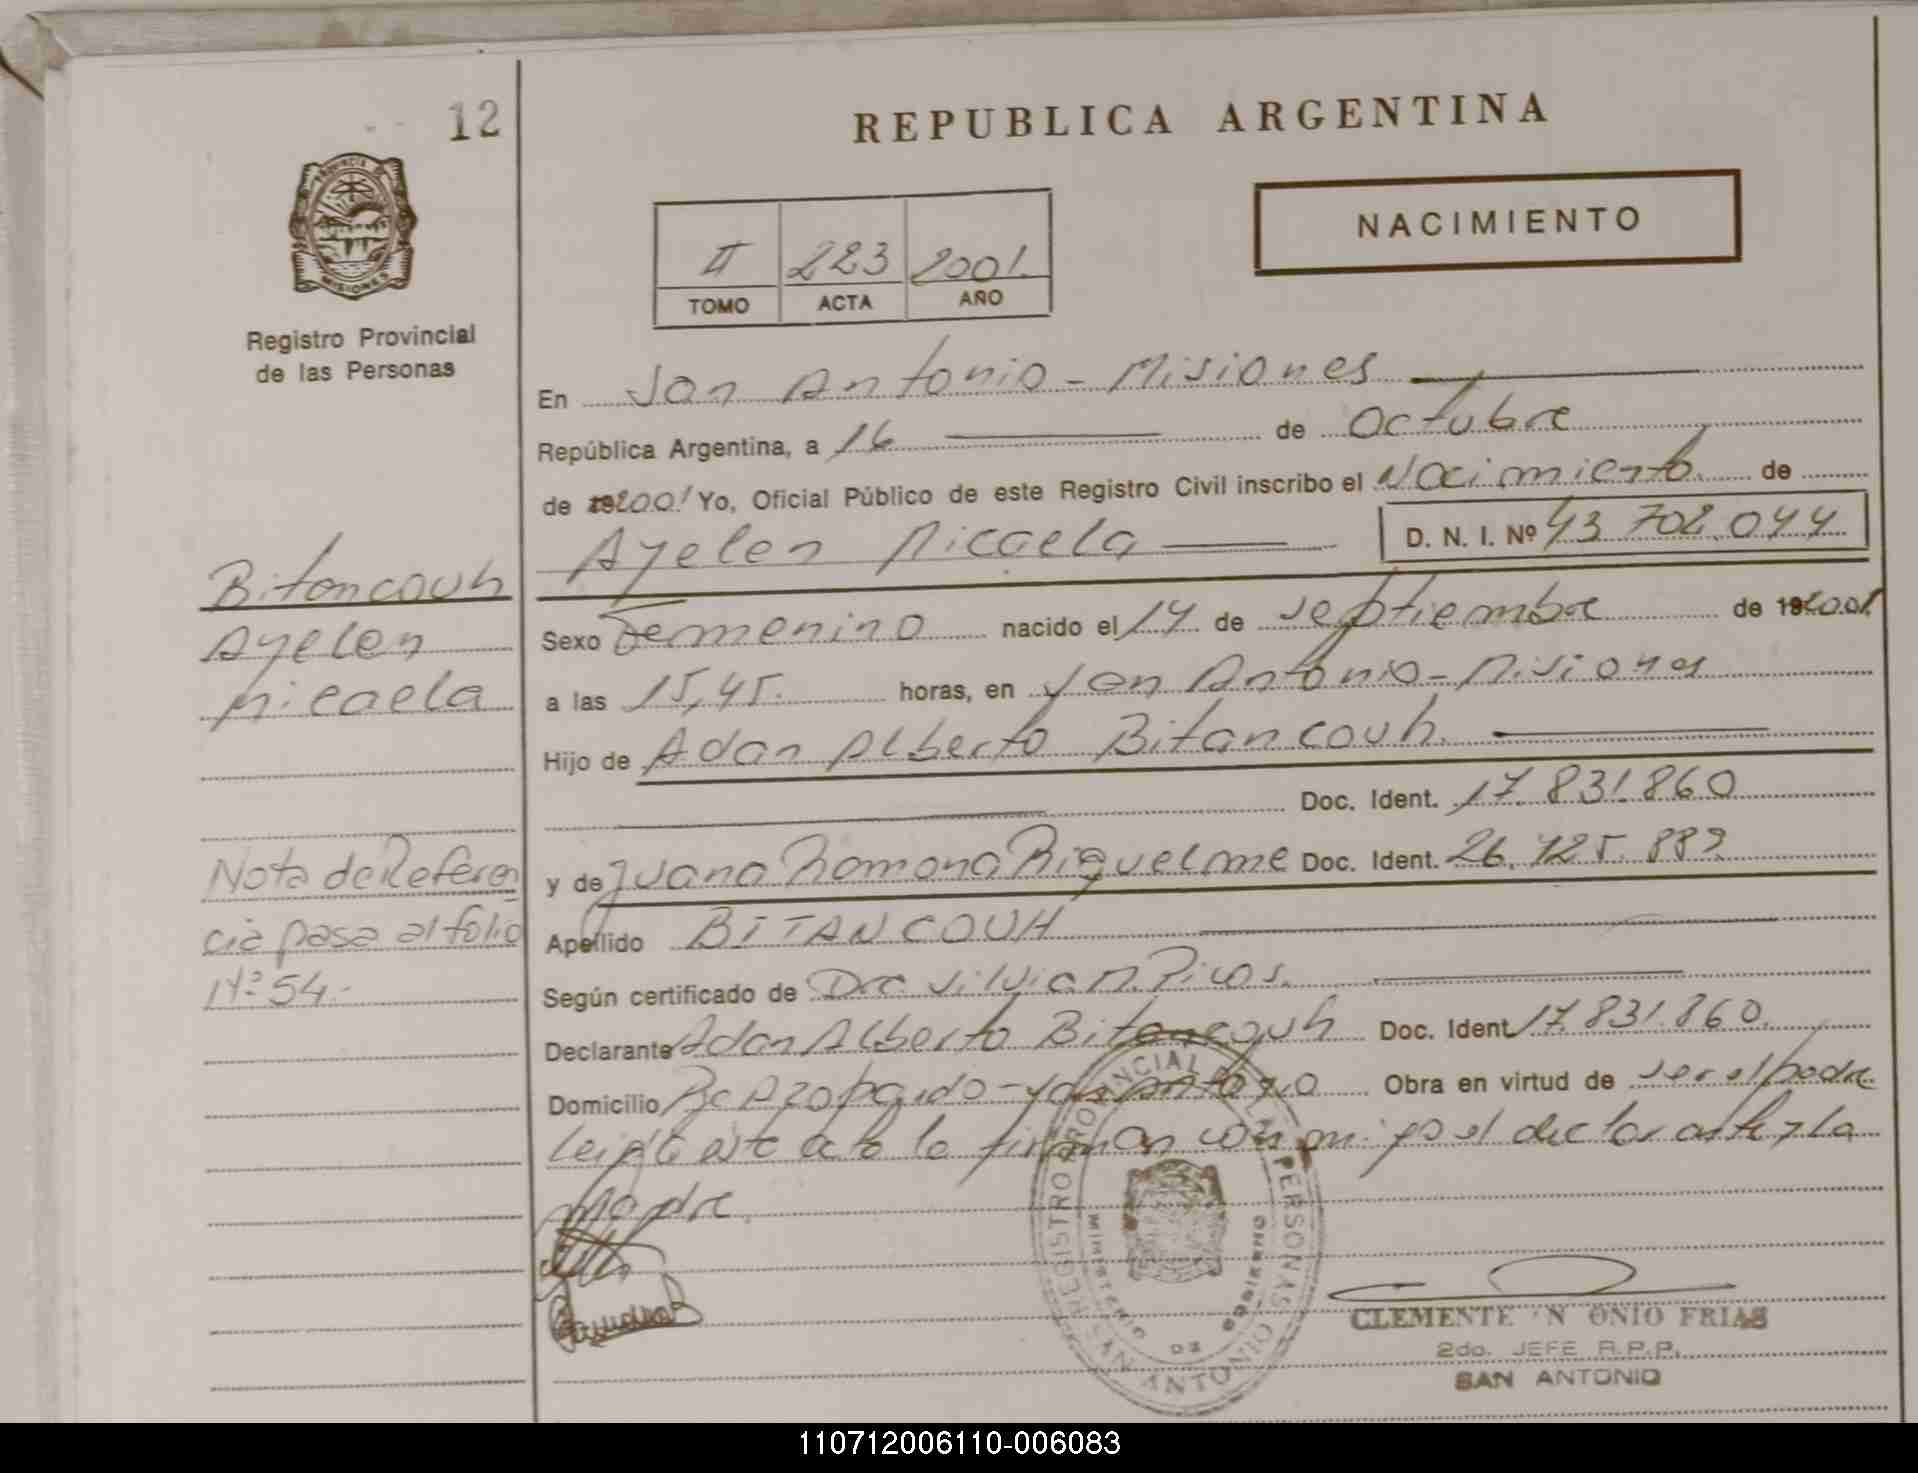 12
REPUBLICA ARGENTINA
PROVINCIA DE MISIONES
NACIMIENTO
II 223 2001.
TOMO ACTA AÑO
Registro Provincial
de las Personas
En San Antonio - Misiones
República Argentina, a 16 de Octubre
de 192001 Yo, Oficial Público de este Registro Civil inscribo el Nacimiento de
Ayelen Micaela D. N. I. Nº 43 702.044
Bitancouh
Ayelen
Micaela
Sexo Femenino nacido el 14 de Septiembre de 192001
a las 15,45. horas, en San Antonio - Misiones
Hijo de Adan Alberto Bitancouh.
Doc. Ident. 17.831.860
y de Juana Ramona Riquelme Doc. Ident. 26.725.883
Nota de Referen
cia pasa al folio
Nº 54.-
Apellido BITANCOUH
Según certificado de Dra Silvia M. Picos.
Declarante Adan Alberto Bitancouh Doc. Ident 17.831.860.
Domicilio San Antonio Obra en virtud de ser el padre
Leida este acta la firman conmigo el declarante y la
Madre.
REGISTRO PROVINCIAL DE LAS PERSONAS
MINISTERIO DE GOBIERNO
SAN ANTONIO
CLEMENTE N ONIO FRIAS
2do. JEFE R.P.P.
SAN ANTONIO
110712006110-006083